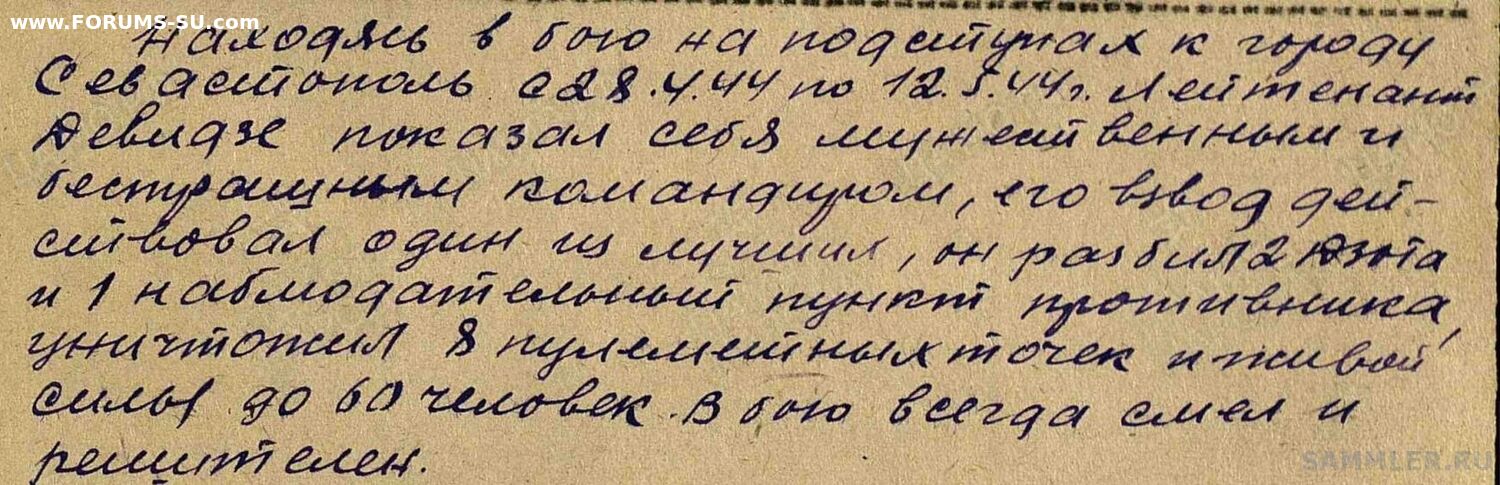 www.FORUMS-SU.com
Находясь в бою на подступах к городу
Севастополь с 28.4.44 по 12.5.44г. Лейтенант
Девидзе показал себя мужественным и
бестрашным командиром, его взвод дей-
ствовал один из лучших, он разбил 2 Дзота
и 1 наблюдательный пункт противника,
уничтожил 8 пулеметных точек и живой
силы до 60 человек. В бою всегда смел и
решителен.
SAMMLER.RU